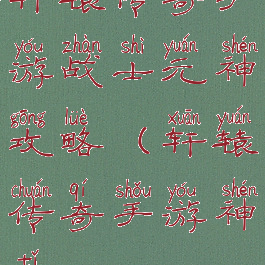 轩辕传奇手
yóu zhàn shì yuán shén
游战士元神
gōng lüè xuān yuán
攻略（轩辕
chuán qí shǒu yóu shén
传奇手游神
tǐ